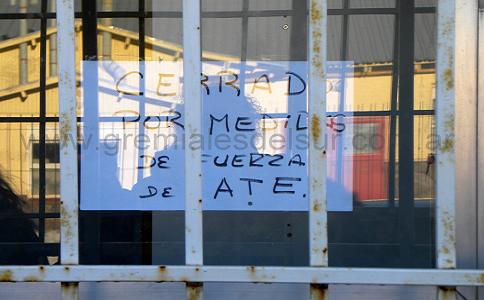 CERRADO
POR MEDIDAS
DE FUERZA
DE ATE.
www.gremialesdelsur.com.ar